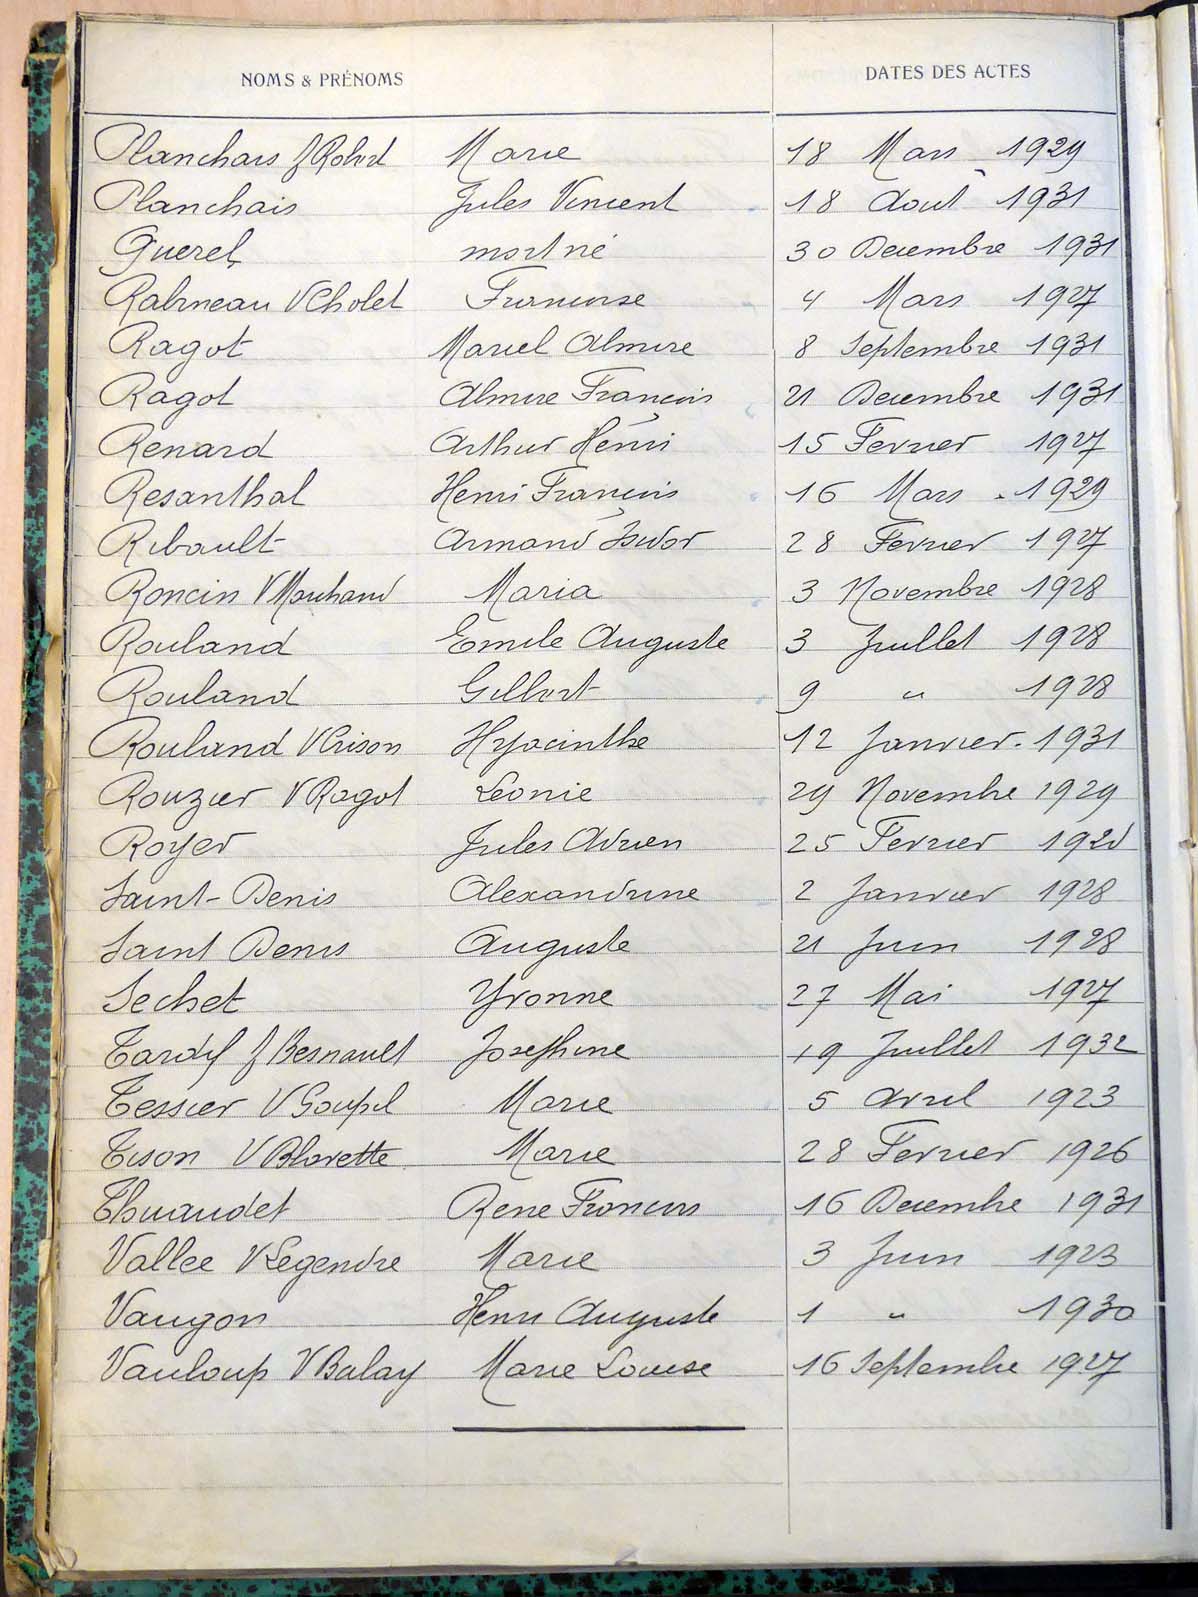 NOMS & PRÉNOMS DATES DES ACTES
Planchais f Marie 18 Mars 1929
Planchais Jules Vincent 18 Août 1931
Queret mort né 30 Decembre 1931
Rabineau V Cholet Francoise 4 Mars 1927
Ragot Marcel Almire 8 Septembre 1931
Ragot Almire François 21 Decembre 1931
Renard Arthur Henri 15 Fevrier 1927
Resanthal Henri François 16 Mars 1929
Ribault Armand Isidor 28 Fevrier 1927
Roncin V Marchand Maria 3 Novembre 1928
Rouland Emile Auguste 3 Juillet 1928
Rouland Gilbert 9 " 1928
Rouland V Crison Hyacinthe 12 Janvier 1931
Rouzier V Ragot Leonie 29 Novembre 1929
Royer Jules Adrien 25 Fevrier
Saint-Denis Alexandrine 2 Janvier 1928
Saint Denis Auguste 21 Juin 1928
Sechet Yvonne 27 Mai 1927
Tardif f Besnault Josephine 19 Juillet 1932
Tessier V Goupil Marie 5 Avril 1923
Tison V Blavette Marie 28 Fevrier 1926
Thuaudet Rene Francois 16 Decembre 1931
Vallee V Legendre Marie 3 Juin 1923
Vaugon Henri Auguste 1 " 1930
Vauloup V Balay Marie Louise 16 Septembre 1927